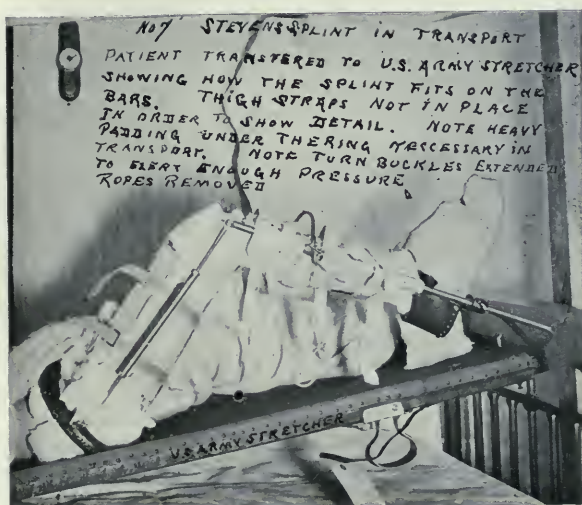 NO 7 STEVENS SPLINT IN TRANSPORT
PATIENT TRANSFERED TO U.S. ARMY STRETCHER
SHOWING HOW THE SPLINT FITS ON THE
BARS. THIGH STRAPS NOT IN PLACE
IN ORDER TO SHOW DETAIL. NOTE HEAVY
PADDING UNDER THE RING NESCESSARY IN
TRANSPORT. NOTE TURN BUCKLES EXTENDED
TO EXERT ENOUGH PRESSURE
ROPES REMOVED
U.S ARMY STRETCHER